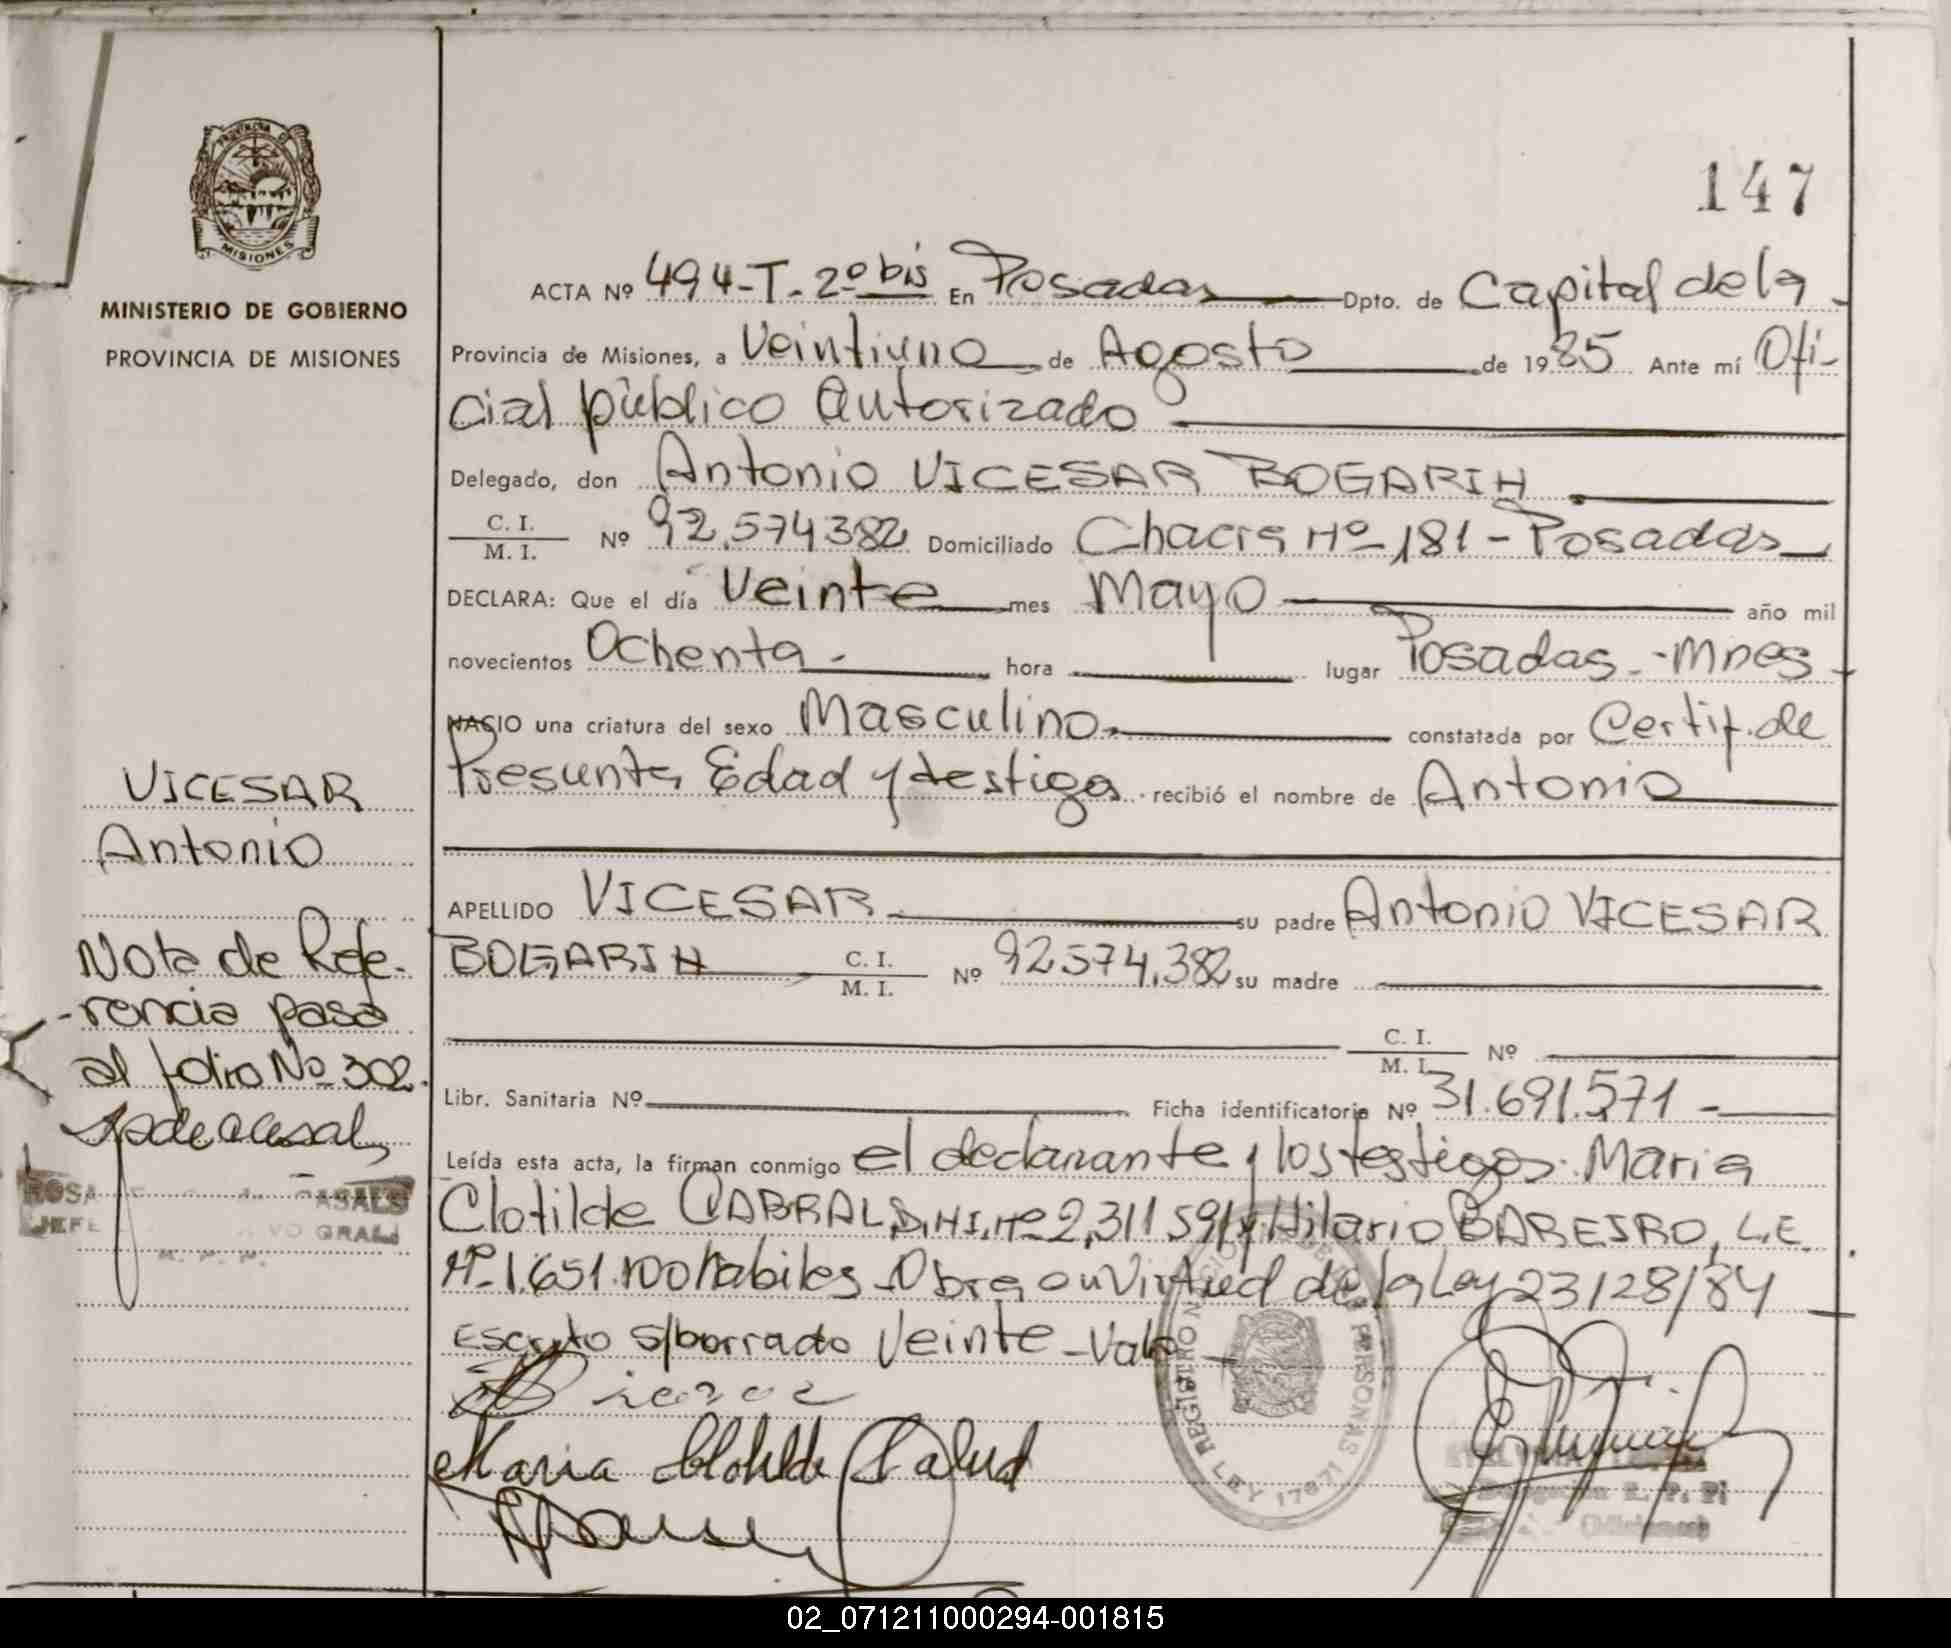 147
PROVINCIA DE
MISIONES
MINISTERIO DE GOBIERNO
PROVINCIA DE MISIONES
ACTA Nº 494-T-2º bis En Posadas Dpto. de Capital de la
Provincia de Misiones, a Veintiuno de Agosto de 1985 Ante mí Ofi-
cial público Autorizado
Delegado, don Antonio VICESAR BOGARIN
C. I. / M. I. Nº 92.574382 Domiciliado Chacra Nº 181 - Posadas
DECLARA: Que el día Veinte mes Mayo año mil
novecientos Ochenta - hora lugar Posadas - Mnes
NACIO una criatura del sexo Masculino constatada por Certif. de
Presunta Edad y testigos recibió el nombre de Antonio
APELLIDO VICESAR su padre Antonio VICESAR
BOGARIN C. I. / M. I. Nº 92574.382 su madre
C. I. / M. I. Nº
Libr. Sanitaria Nº Ficha identificatoria Nº 31.691.571 -
Leída esta acta, la firman conmigo el declarante y los testigos: Maria
Clotilde CABRAL, D.N.I. Nº 2,311591 y Hilario BAREIRO, L.E.
Nº 1.651.100 habiles - Obra en Virtud de la Ley 23128/84
Escrito s/borrado Veinte - Vale
Maria Clotilde Cabral
REGISTRO NACIONAL DE LAS PERSONAS
LEY 17671
VICESAR
Antonio
Nota de Refe-
-rencia pasa
al folio Nº 302.
ROSA CASALS
JEFE GRAL
02_071211000294-001815